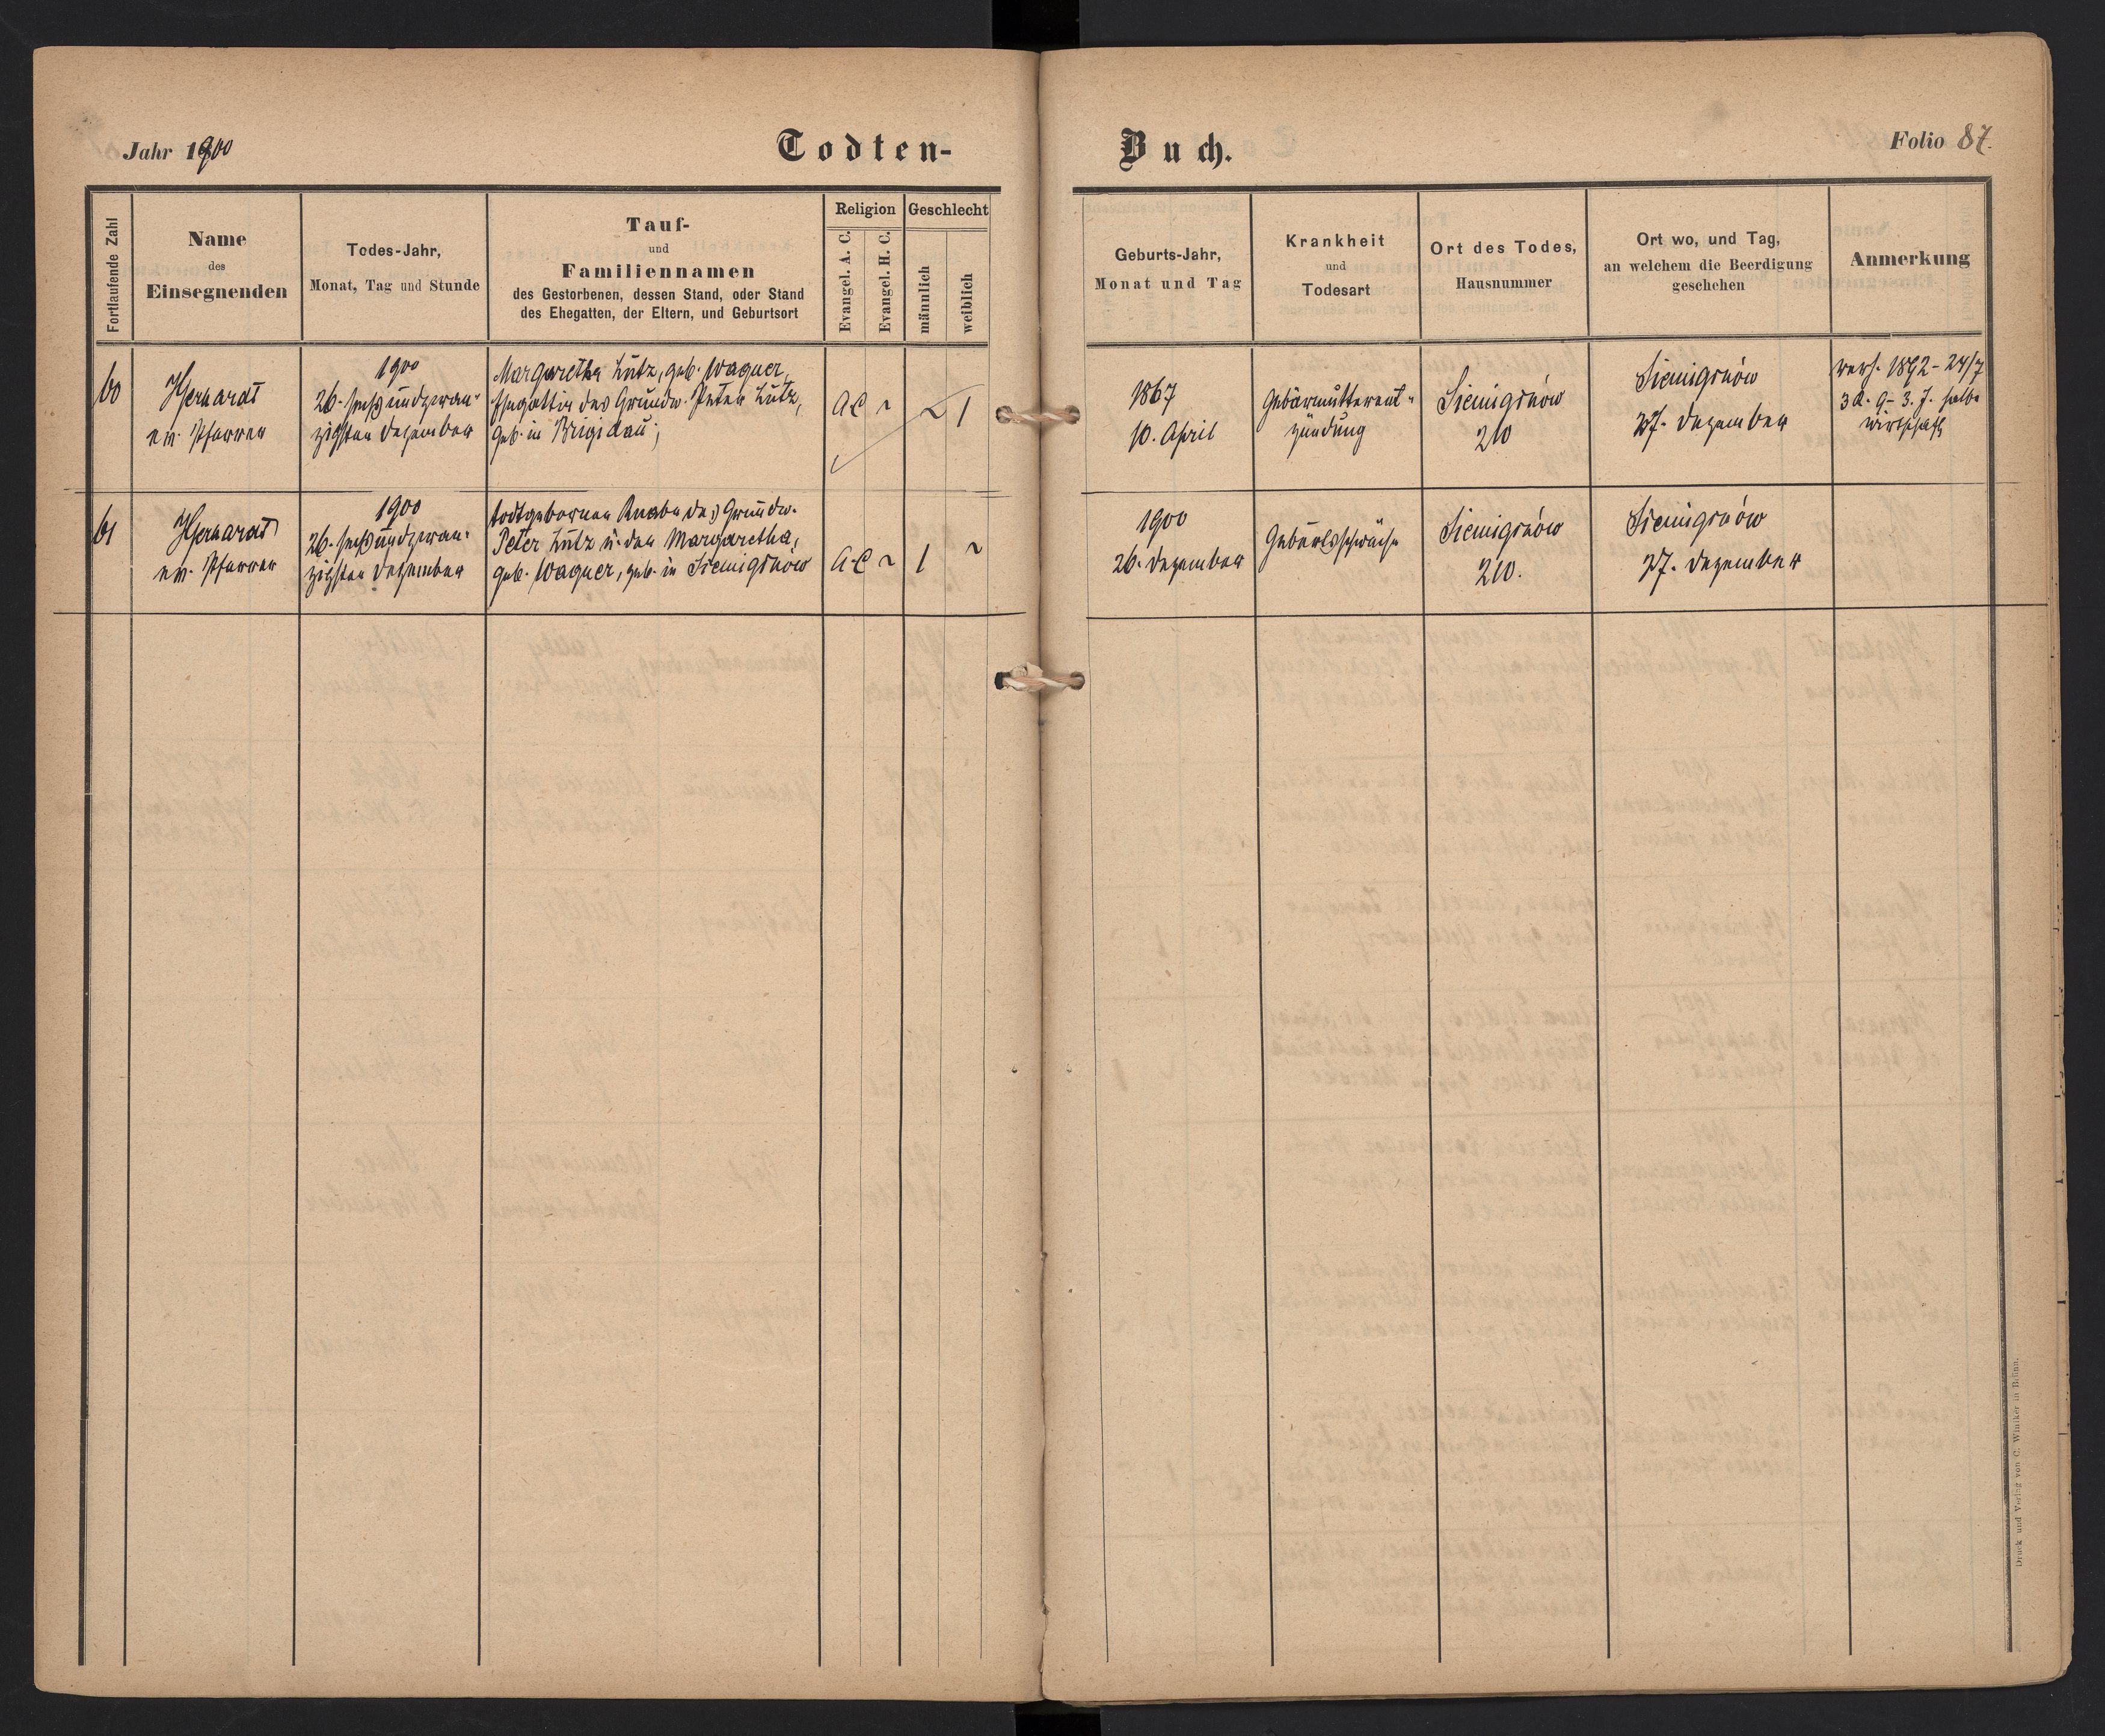 Jahr 1900
Todten-
Buch.
Folio 87.
Fortlaufende Zahl
Name
des
Einsegnenden
Todes-Jahr,
Monat, Tag und Stunde
Tauf-
und
Familiennamen
des Gestorbenen, dessen Stand, oder Stand
des Ehegatten, der Eltern, und Geburtsort
Religion
Evangel. A. C.
Evangel. H. C.
Geschlecht
männlich
weiblich
Geburts-Jahr,
Monat und Tag
Krankheit
und
Todesart
Ort des Todes,
Hausnummer
Ort wo, und Tag,
an welchem die Beerdigung
geschehen
Anmerkung
60
Gerhardt
ev. Pfarrer
1900
26. sechsundzwan-
zigster Dezember
Margaretha Lutz, geb. Wagner,
Ehegattin des Grundw. Peter Lutz,
geb. in Brigidau;
AC ~ ~ 1
1867
10. April
Gebärmutterent-
zündung
Siemignów
210
Siemignów
27. Dezember
verh. 1892 - 24/7
3 K. 9 - 3. J. halbe
Wirtschaft
61
Gerhardt
ev. Pfarrer
1900
26. sechsundzwan-
zigster Dezember
todtgeborner Knabe des Grundw.
Peter Lutz u. der Margaretha,
geb. Wagner, geb. in Siemignów
A.C ~ 1 ~
1900
26. Dezember
Geburtsschwäche
Siemignów
210.
Siemignów
27. Dezember
Druck und Verlag von C. Winiker in Brünn.